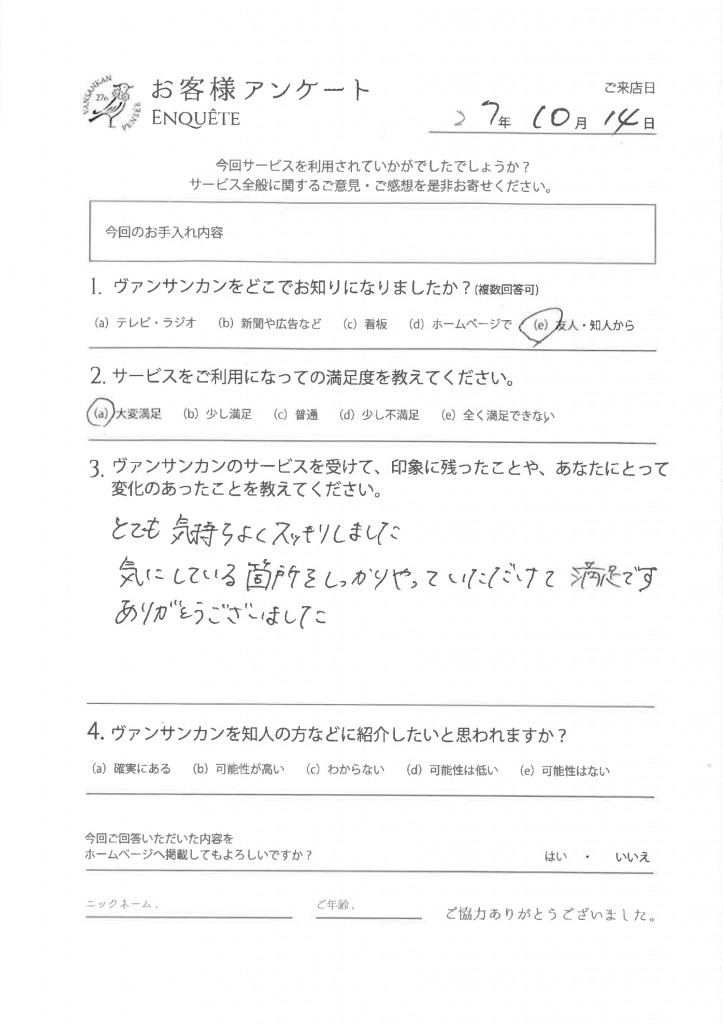 VANSANKAN 27e PENSÉE
お客様アンケート
ENQUÊTE
ご来店日
27年 10月 14日
今回サービスを利用されていかがでしたでしょうか？
サービス全般に関するご意見・ご感想を是非お寄せください。
今回のお手入れ内容
1. ヴァンサンカンをどこでお知りになりましたか？(複数回答可)
(a) テレビ・ラジオ (b) 新聞や広告など (c) 看板 (d) ホームページで (e) 友人・知人から
2. サービスをご利用になっての満足度を教えてください。
(a) 大変満足 (b) 少し満足 (c) 普通 (d) 少し不満足 (e) 全く満足できない
3. ヴァンサンカンのサービスを受けて、印象に残ったことや、あなたにとって
変化のあったことを教えてください。
とても 気持ちよくスッキリしました
気にしている箇所をしっかりやっていただけて 満足です
ありがとうございました
4. ヴァンサンカンを知人の方などに紹介したいと思われますか？
(a) 確実にある (b) 可能性が高い (c) わからない (d) 可能性は低い (e) 可能性はない
今回ご回答いただいた内容を
ホームページへ掲載してもよろしいですか？
はい ・ いいえ
ニックネーム.
ご年齢.
ご協力ありがとうございました。